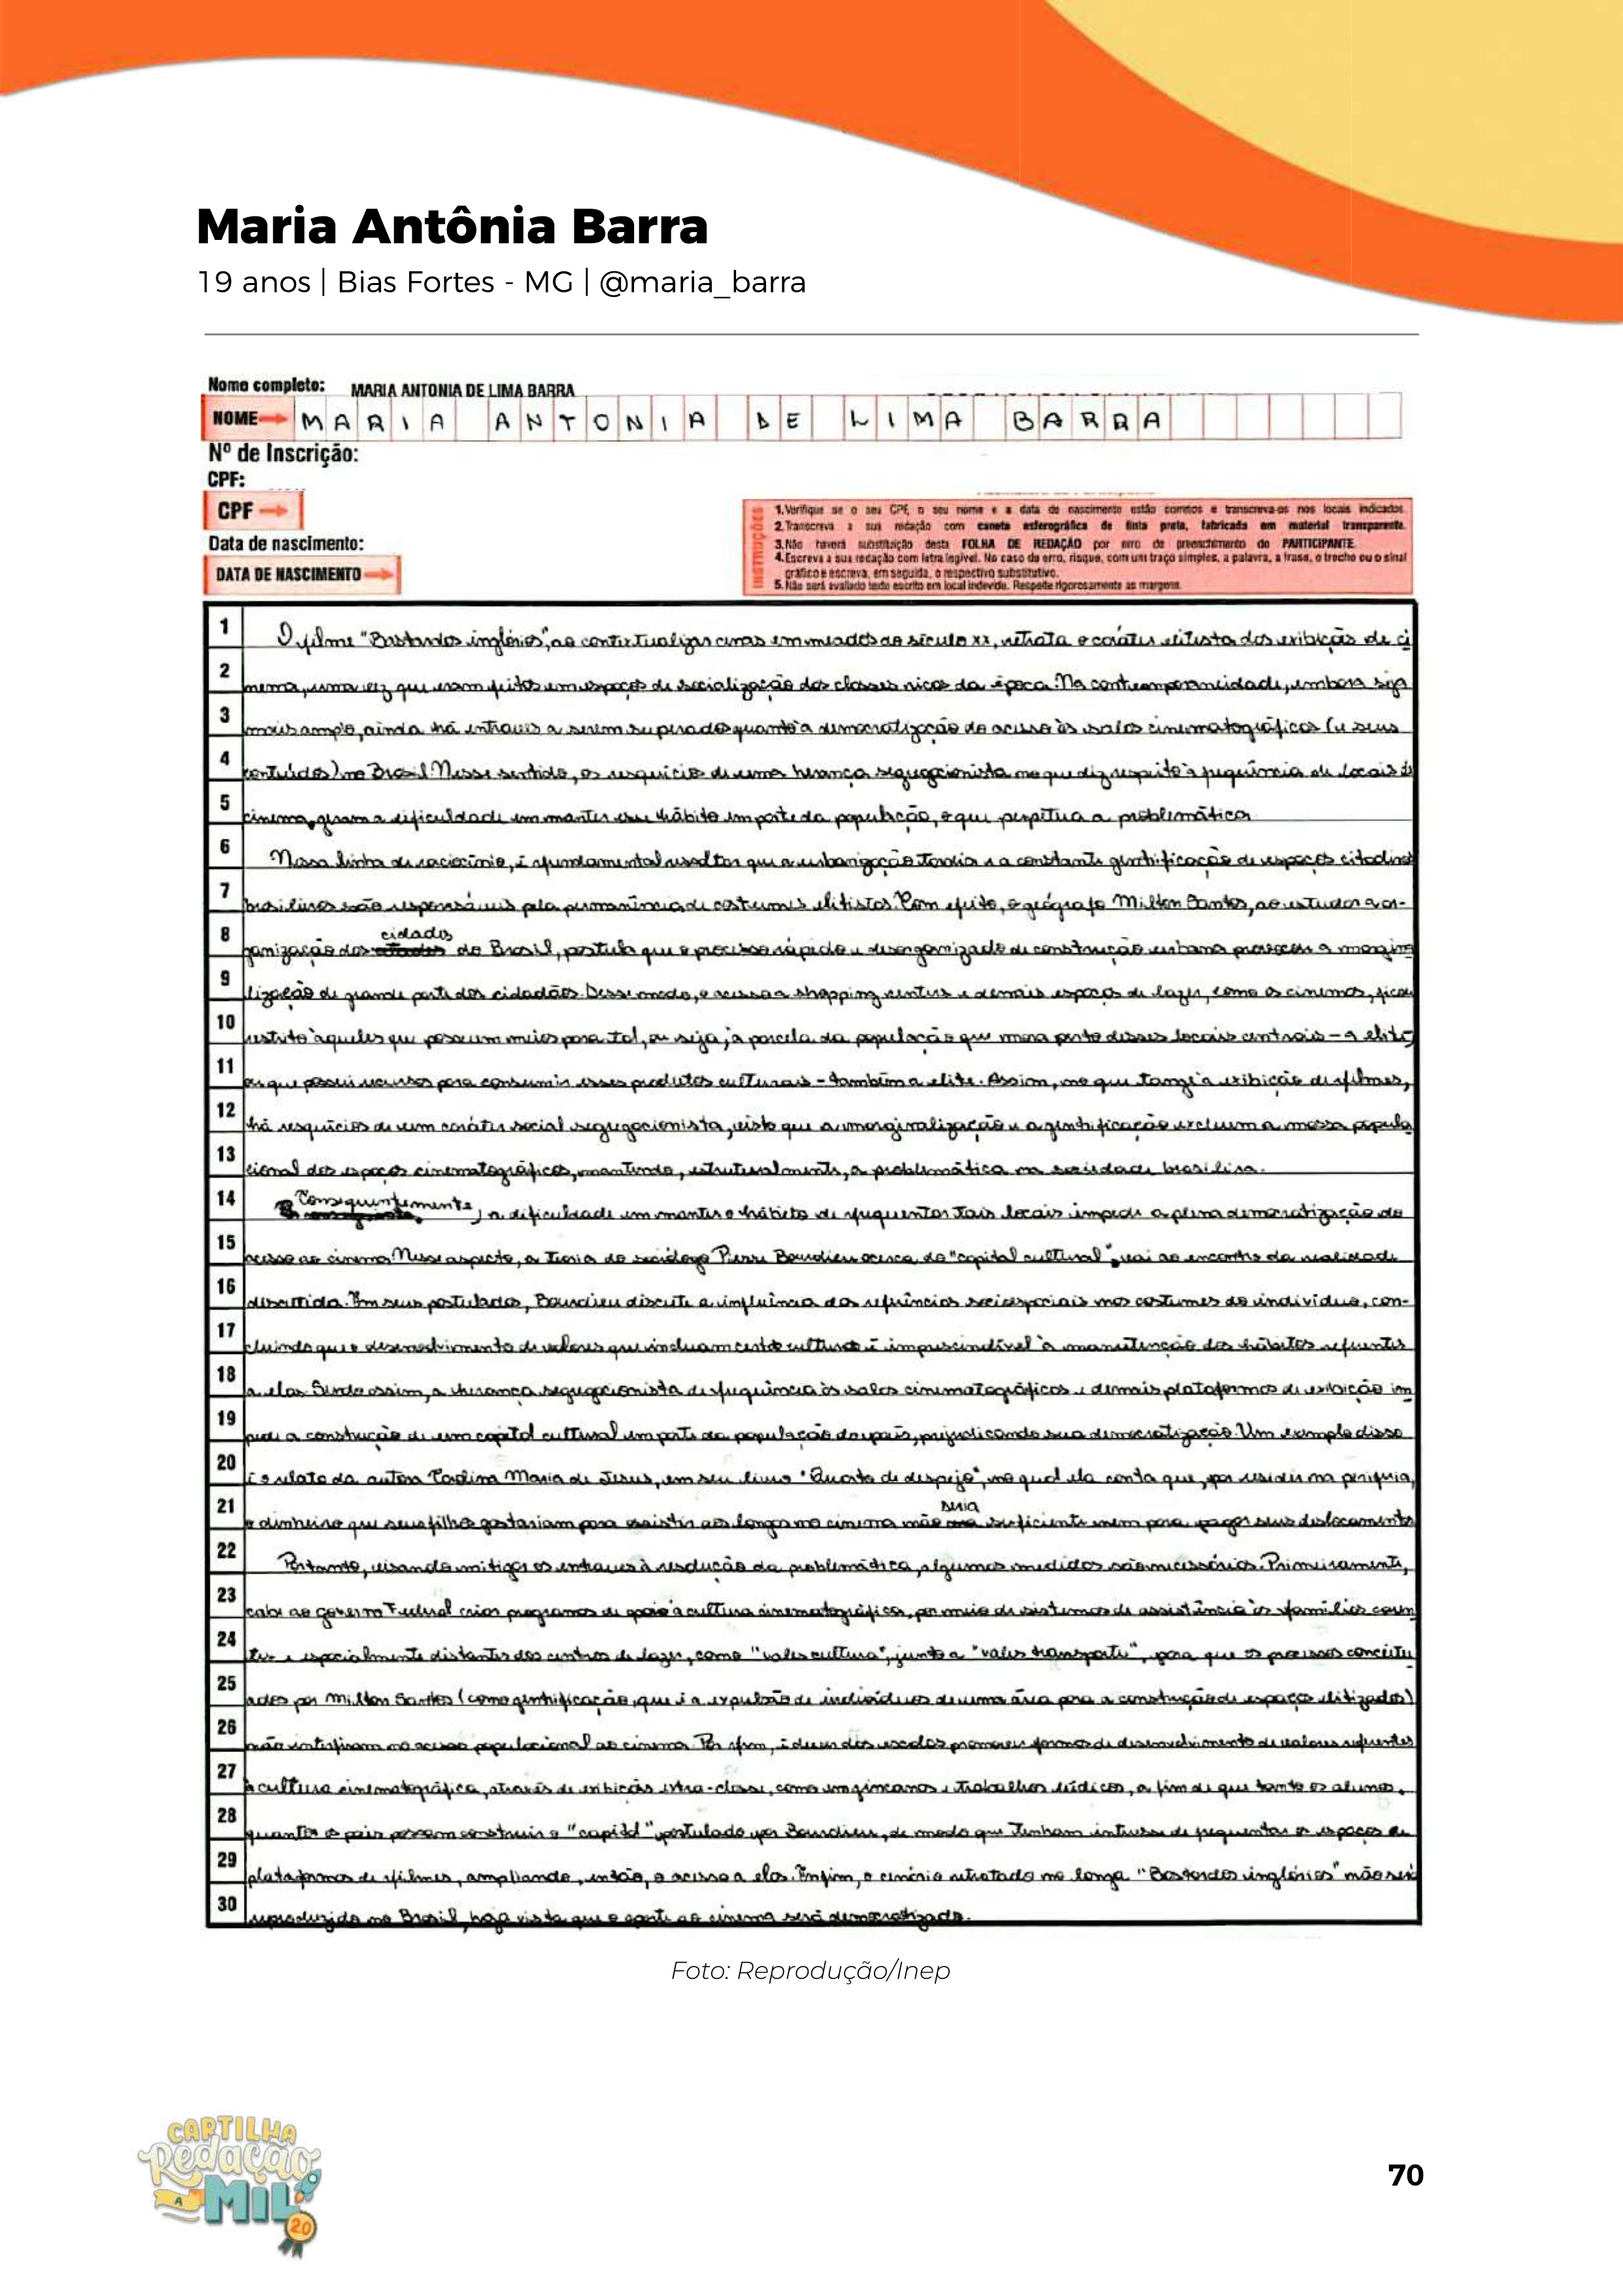 Maria Antônia Barra
19 anos | Bias Fortes - MG | @maria_barra
Nome completo: MARIA ANTONIA DE LIMA BARRA
NOME MARIA ANTONIA DE LIMA BARRA
Nº de Inscrição:
CPF:
CPF
Data de nascimento:
DATA DE NASCIMENTO
INSTRUÇÕES
1. Verifique se o seu CPF, o seu nome e a data de nascimento estão corretos e transcreva-os nos locais indicados.
2. Transcreva a sua redação com caneta esferográfica de tinta preta, fabricada em material transparente.
3. Não haverá substituição desta FOLHA DE REDAÇÃO por erro de preenchimento do PARTICIPANTE.
4. Escreva a sua redação com letra legível. No caso de erro, risque, com um traço simples, a palavra, a frase, o trecho ou o sinal
gráfico e escreva, em seguida, o respectivo substitutivo.
5. Não será avaliado texto escrito em local indevido. Respeite rigorosamente as margens.
1 O filme "Bastardos inglórios", ao contextualizar cenas em meados do século XX, retrata o caráter elitista das exibições de ci
2 nema, uma vez que eram feitas em espaços de socialização das classes ricas da época. Na contemporaneidade, embora seja
3 mais amplo, ainda há entraves a serem superados quanto à democratização do acesso às salas cinematográficas (e seus
4 conteúdos) no Brasil. Nesse sentido, os resquícios de uma herança segregacionista no que diz respeito à frequência de locais de
5 cinema, geram a dificuldade em manter esse hábito em parte da população, o que perpetua a problemática.
6 Nessa linha de raciocínio, é fundamental ressaltar que a urbanização tardia e a constante gentrificação de espaços citadinos
7 brasileiros são responsáveis pela permanência de costumes elitistas. Com efeito, o geógrafo Milton Santos, ao estudar a or-
8 ganização das cidades do Brasil, postula que o processo rápido e desorganizado de construção urbana provocou a margina
9 lização de grande parte dos cidadãos. Desse modo, o acesso a shopping centers e demais espaços de lazer, como os cinemas, ficou
10 restrito àqueles que possuem meios para tal, ou seja, a parcela da população que mora perto desses locais centrais – a elite,
11 ou que possui recursos para consumir esses produtos culturais – também a elite. Assim, no que tange à exibição de filmes,
12 há resquícios de um caráter social segregacionista, visto que a marginalização e a gentrificação excluem a massa popula
13 cional dos espaços cinematográficos, mantendo, estruturalmente, a problemática na sociedade brasileira.
14 Consequentemente, a dificuldade em manter o hábito de frequentar tais locais impede a plena democratização do
15 acesso ao cinema. Nesse aspecto, a teoria do sociólogo Pierre Bourdieu acerca do "capital cultural", vai ao encontro da realidade
16 discutida. Em seus postulados, Bourdieu discute a influência das referências socioespaciais nos costumes do indivíduo, con-
17 cluindo que o desenvolvimento de valores que incluam certas culturas é imprescindível à manutenção dos hábitos referentes
18 a elas. Sendo assim, a herança segregacionista de frequência às salas cinematográficas e demais plataformas de exibição im
19 pede a construção de um capital cultural em parte da população do país, prejudicando sua democratização. Um exemplo disso
20 é o relato da autora Carolina Maria de Jesus, em seu livro "Quarto de despejo", no qual ela conta que, por residir na periferia,
21 o dinheiro que seus filhos gastariam para assistir aos longas no cinema não seria suficiente nem para pagar seus deslocamentos
22 Portanto, visando mitigar os entraves à resolução da problemática, algumas medidas são necessárias. Primeiramente,
23 cabe ao governo Federal criar programas de apoio à cultura cinematográfica, por meio de sistemas de assistência às famílias caren
24 tes e espacialmente distantes dos centros de lazer, como "vales cultura", junto a "vales transporte", para que os processos conceitu
25 ados por Milton Santos (como gentrificação, que é a expulsão de indivíduos de uma área para a construção de espaços elitizados)
26 não interfiram no acesso populacional ao cinema. Por fim, é dever das escolas promover formas de desenvolvimento de valores referentes
27 à cultura cinematográfica, através de exibições extra-classe, como em gincanas e trabalhos lúdicos, a fim de que tanto os alunos,
28 quanto os pais possam construir o "capital" postulado por Bourdieu, de modo que tenham interesse de frequentar os espaços ou
29 plataformas de filmes, ampliando, então, o acesso a elas. Enfim, o cenário retratado no longa "Bastardos inglórios" não será
30 reproduzido no Brasil, haja vista que o aporte ao cinema será democratizado.
Foto: Reprodução/Inep
CARTILHA
Redação
A MIL
20
70